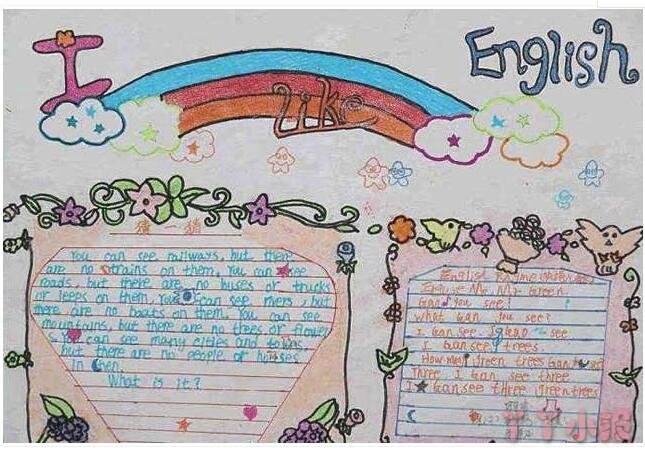 I
Like
English
猜一猜
You can see railways, but there
are no trains on them. You can see
roads, but there are no buses or trucks
or jeeps on them. You can see rivers, but
there are no boats on them. You can see
mountains, but there are no trees or flower
s. You can see many cities and towns
but there are no people or houses
in them.
What is it?
English Rhyme
Excuse Me Mr. Green
Can you see?
What can you see?
I can see. I can see
I can see trees.
How many green trees can see
Three I can see three
I can see three green trees